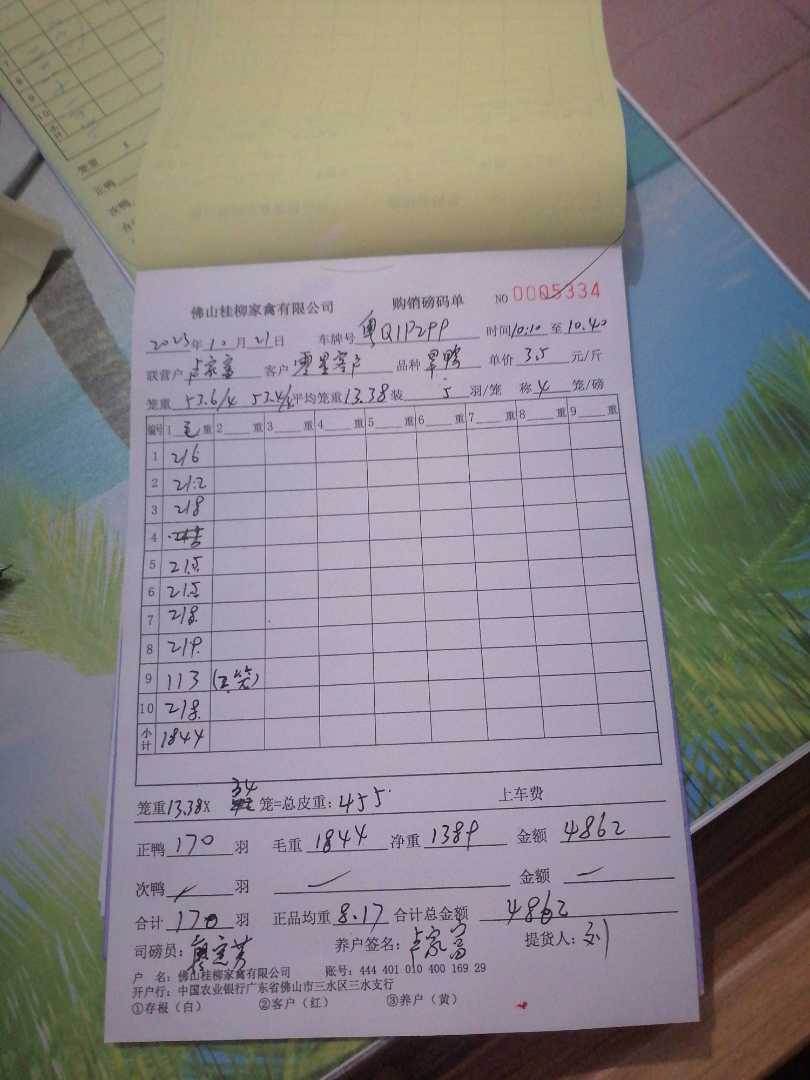 佛山桂柳家禽有限公司 购销磅码单 NO 0005334
2023年10月21日 车牌号 粤Q1P2PP 时间10:10 至 10.40
联营户 卢家富 客户 零星客户 品种 旱鸭 单价 3.5 元/斤
笼重 53.6/4 53.4/4 平均笼重 13.38 装 5 羽/笼 称 4 笼/磅
编号 1 毛 重 2 重 3 重 4 重 5 重 6 重 7 重 8 重 9 重
1 216
2 212
3 218
4
5 215
6 215
7 218
8 219
9 113 (2笼)
10 218
小计 1844
笼重13.38X 34 笼=总皮重: 455 上车费
正鸭 170 羽 毛重 1844 净重 1389 金额 4862
次鸭 羽 金额
合计 170 羽 正品均重 8.17 合计总金额 4862
司磅员: 养户签名: 卢家富 提货人: 刘
户 名: 佛山桂柳家禽有限公司 账号: 444 401 010 400 169 29
开户行: 中国农业银行广东省佛山市三水区三水支行
①存根（白） ②客户（红） ③养户（黄）